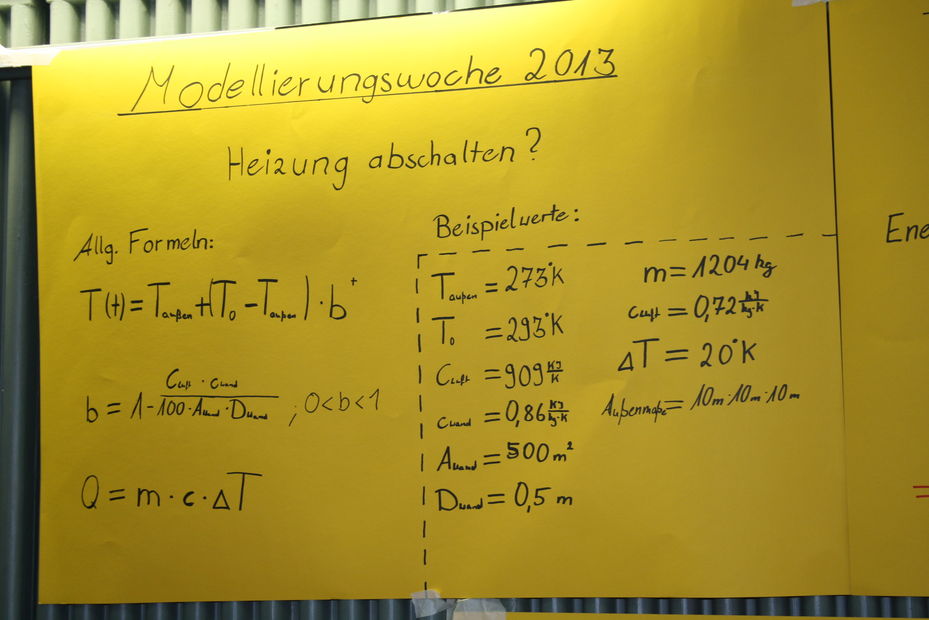 Modellierungswoche 2013
Heizung abschalten?
Allg. Formeln:
T(t) = T_außen + (T_0 - T_außen) · b^t
b = 1 - (C_Luft · c_Wand) / (100 · A_Wand · D_Wand) ; 0<b<1
Q = m · c · ΔT
Beispielwerte:
T_außen = 273°K
T_0 = 293°K
C_Luft = 909 KJ/K
c_Wand = 0,86 KJ/(kg·K)
A_Wand = 500 m²
D_Wand = 0,5 m
m = 1204 kg
c_Luft = 0,72 KJ/(kg·K)
ΔT = 20°K
Außenmaße = 10m·10m·10m
Ene